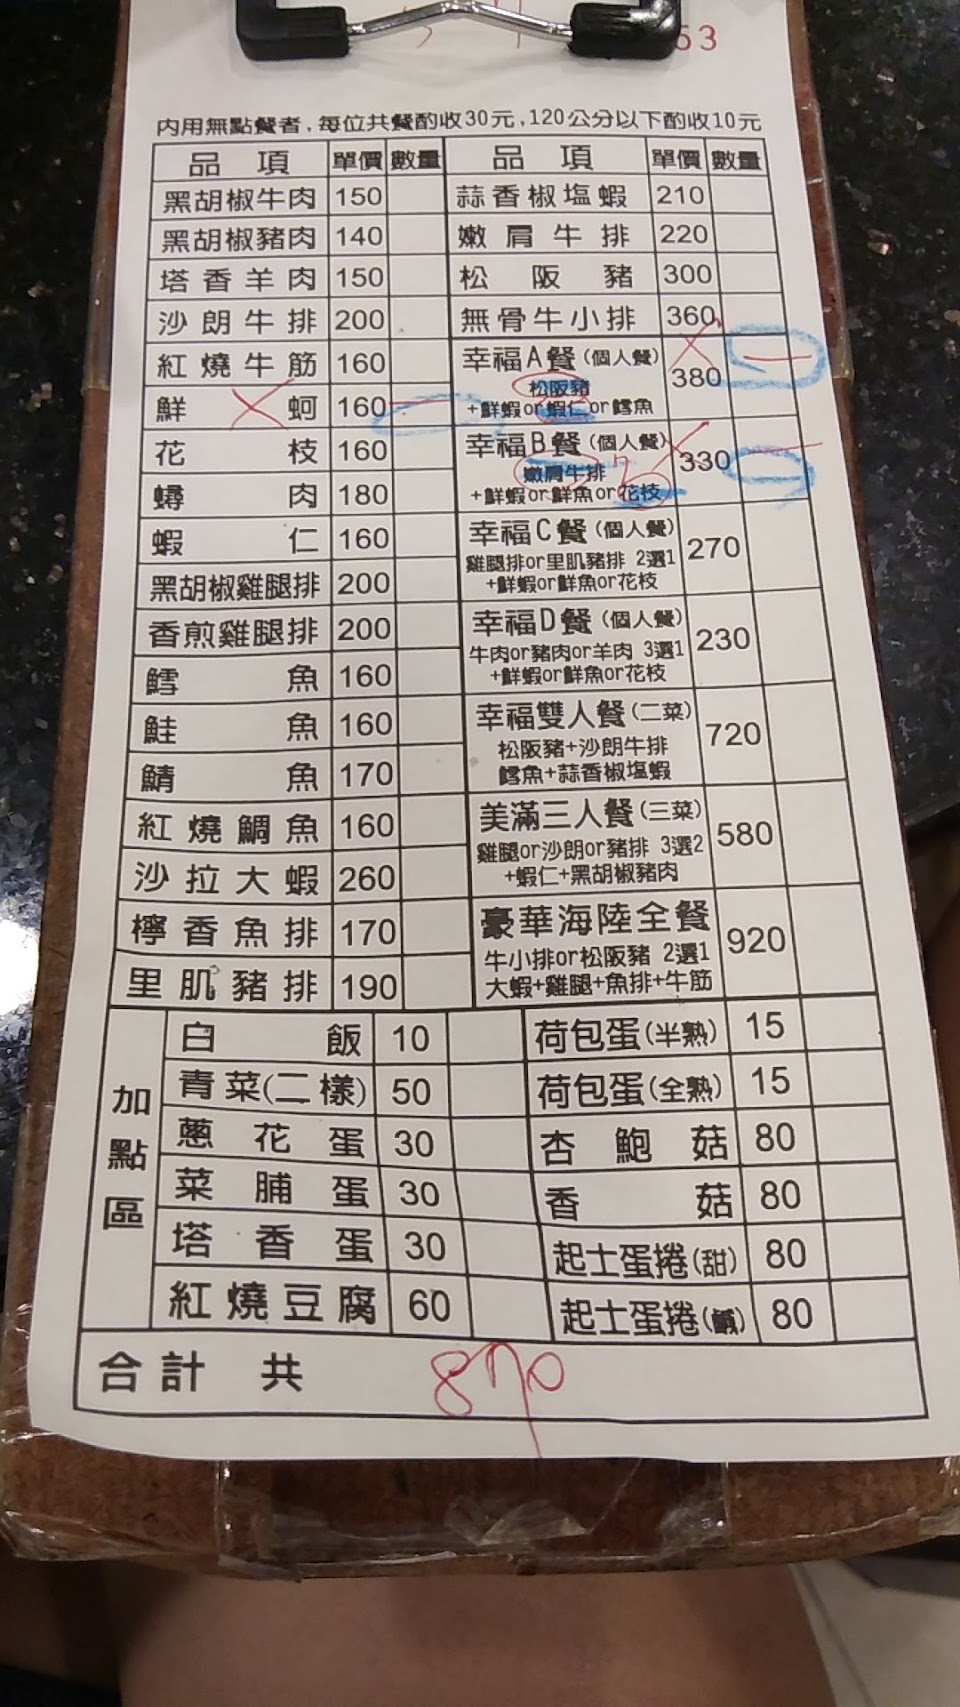 53
內用無點餐者,每位共餐酌收30元,120公分以下酌收10元
品項 單價 數量 品項 單價 數量
黑胡椒牛肉 150 蒜香椒塩蝦 210
黑胡椒豬肉 140 嫩肩牛排 220
塔香羊肉 150 松阪豬 300
沙朗牛排 200 無骨牛小排 360
紅燒牛筋 160 幸福A餐(個人餐) 380 一
松阪豬
鮮蚵 160 一 +鮮蝦or蝦仁or鱈魚
花枝 160 幸福B餐(個人餐) 330 一
嫩肩牛排
蟳肉 180 +鮮蝦or鮮魚or花枝
蝦仁 160 幸福C餐(個人餐) 270
雞腿排or里肌豬排 2選1
黑胡椒雞腿排 200 +鮮蝦or鮮魚or花枝
香煎雞腿排 200 幸福D餐(個人餐) 230
牛肉or豬肉or羊肉 3選1
鱈魚 160 +鮮蝦or鮮魚or花枝
鮭魚 160 幸福雙人餐(二菜) 720
松阪豬+沙朗牛排
鯖魚 170 鱈魚+蒜香椒塩蝦
紅燒鯛魚 160 美滿三人餐(三菜) 580
雞腿or沙朗or豬排 3選2
沙拉大蝦 260 +蝦仁+黑胡椒豬肉
檸香魚排 170 豪華海陸全餐 920
牛小排or松阪豬 2選1
里肌豬排 190 大蝦+雞腿+魚排+牛筋
加點區
白飯 10 荷包蛋(半熟) 15
青菜(二樣) 50 荷包蛋(全熟) 15
蔥花蛋 30 杏鮑菇 80
菜脯蛋 30 香菇 80
塔香蛋 30 起士蛋捲(甜) 80
紅燒豆腐 60 起士蛋捲(鹹) 80
合計 共 870